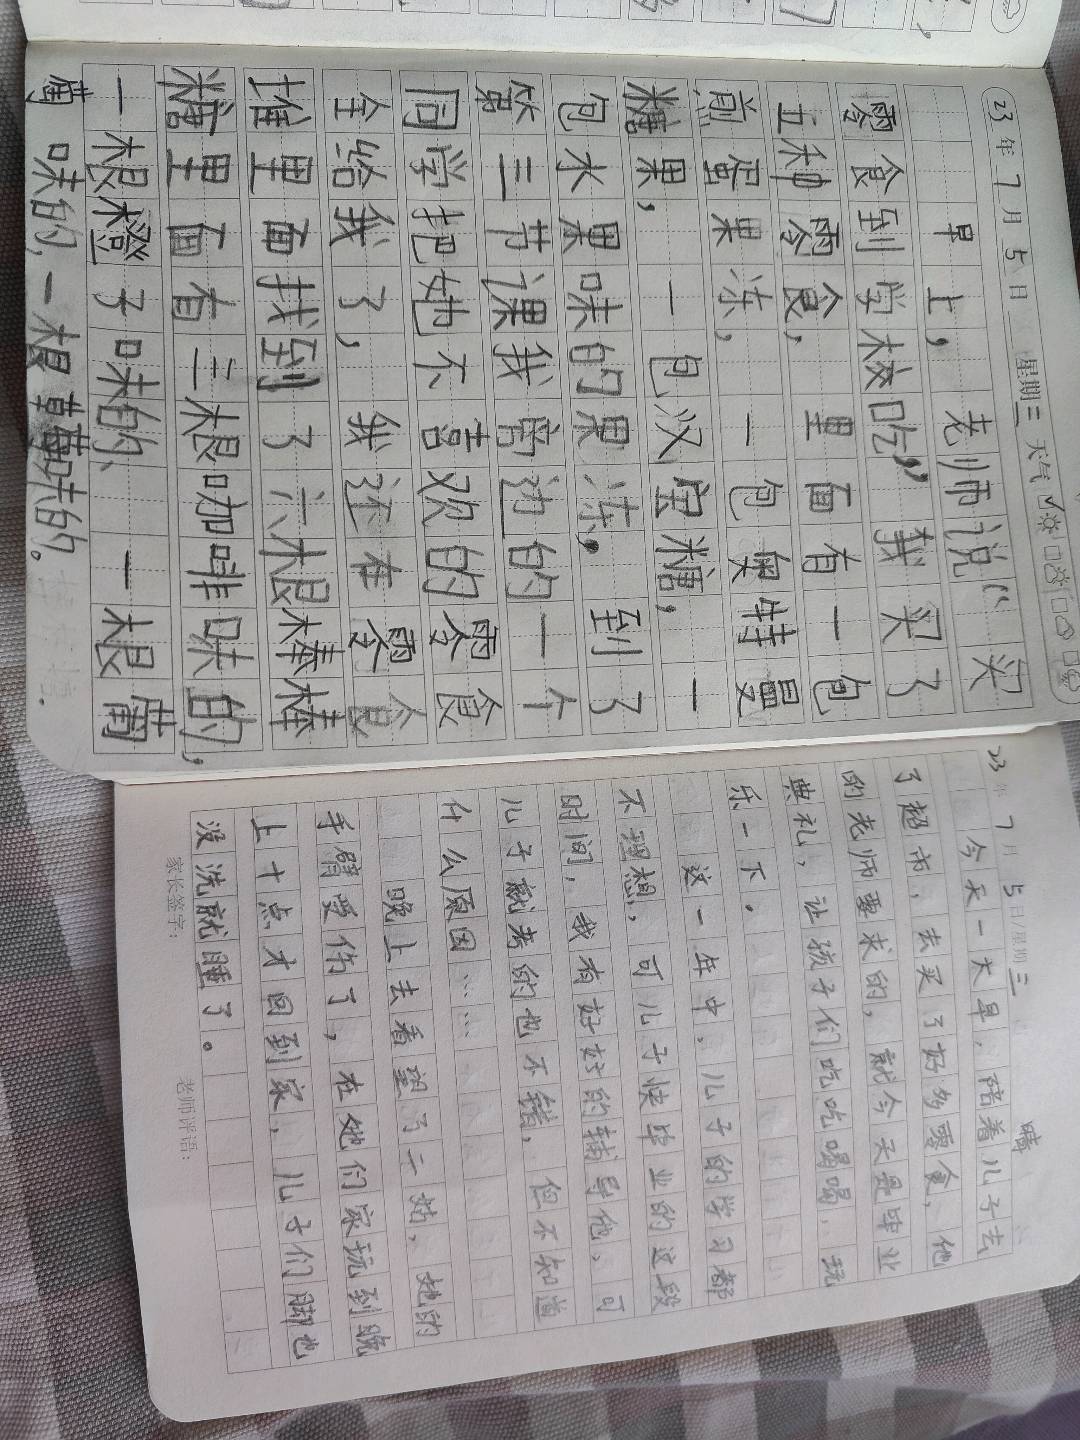 23年7月5日 星期三 天气
早上，老师说“买
零食到学校吃”，我买了
五种零食，里面有一包
煎蛋果冻，一包奥特曼
糖果，一包汉堡糖，一
包水果味的果冻，到了
第三节课我旁边的一个
同学把她不喜欢的零食
全给我了，我还在零食
堆里面找到了六根棒棒
糖里面有三根咖啡味的，
一根橙子味的、一根葡
萄味的，一根草莓味的。
23年7月5日/星期三 晴
今天一大早，陪着儿子去
了超市，去买了好多零食，他
的老师要求的，就今天是毕业
典礼，让孩子们吃吃喝喝，玩
乐一下。
这一年中，儿子的学习都
不理想，可儿子快毕业的这段
时间，我有好好的辅导他，可
儿子就考的也不错，但不知道
什么原因……
晚上去看望了二姑，她的
手臂受伤了，在她们家玩到晚
上十点才回到家，儿子们脚也
没洗就睡了。
家长签字：
老师评语：